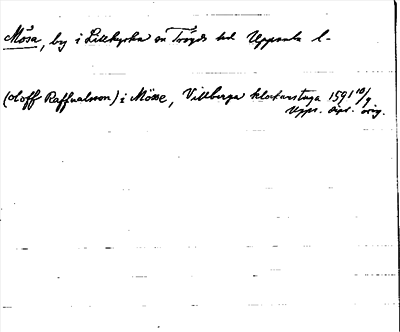 Mösa, by i Litkyrka sn Trögds hd Uppsala l-
(Oloff Raffualsson) i Mösse, Villberga klockarstuga 1591 10/9
Upps. dipl. orig.